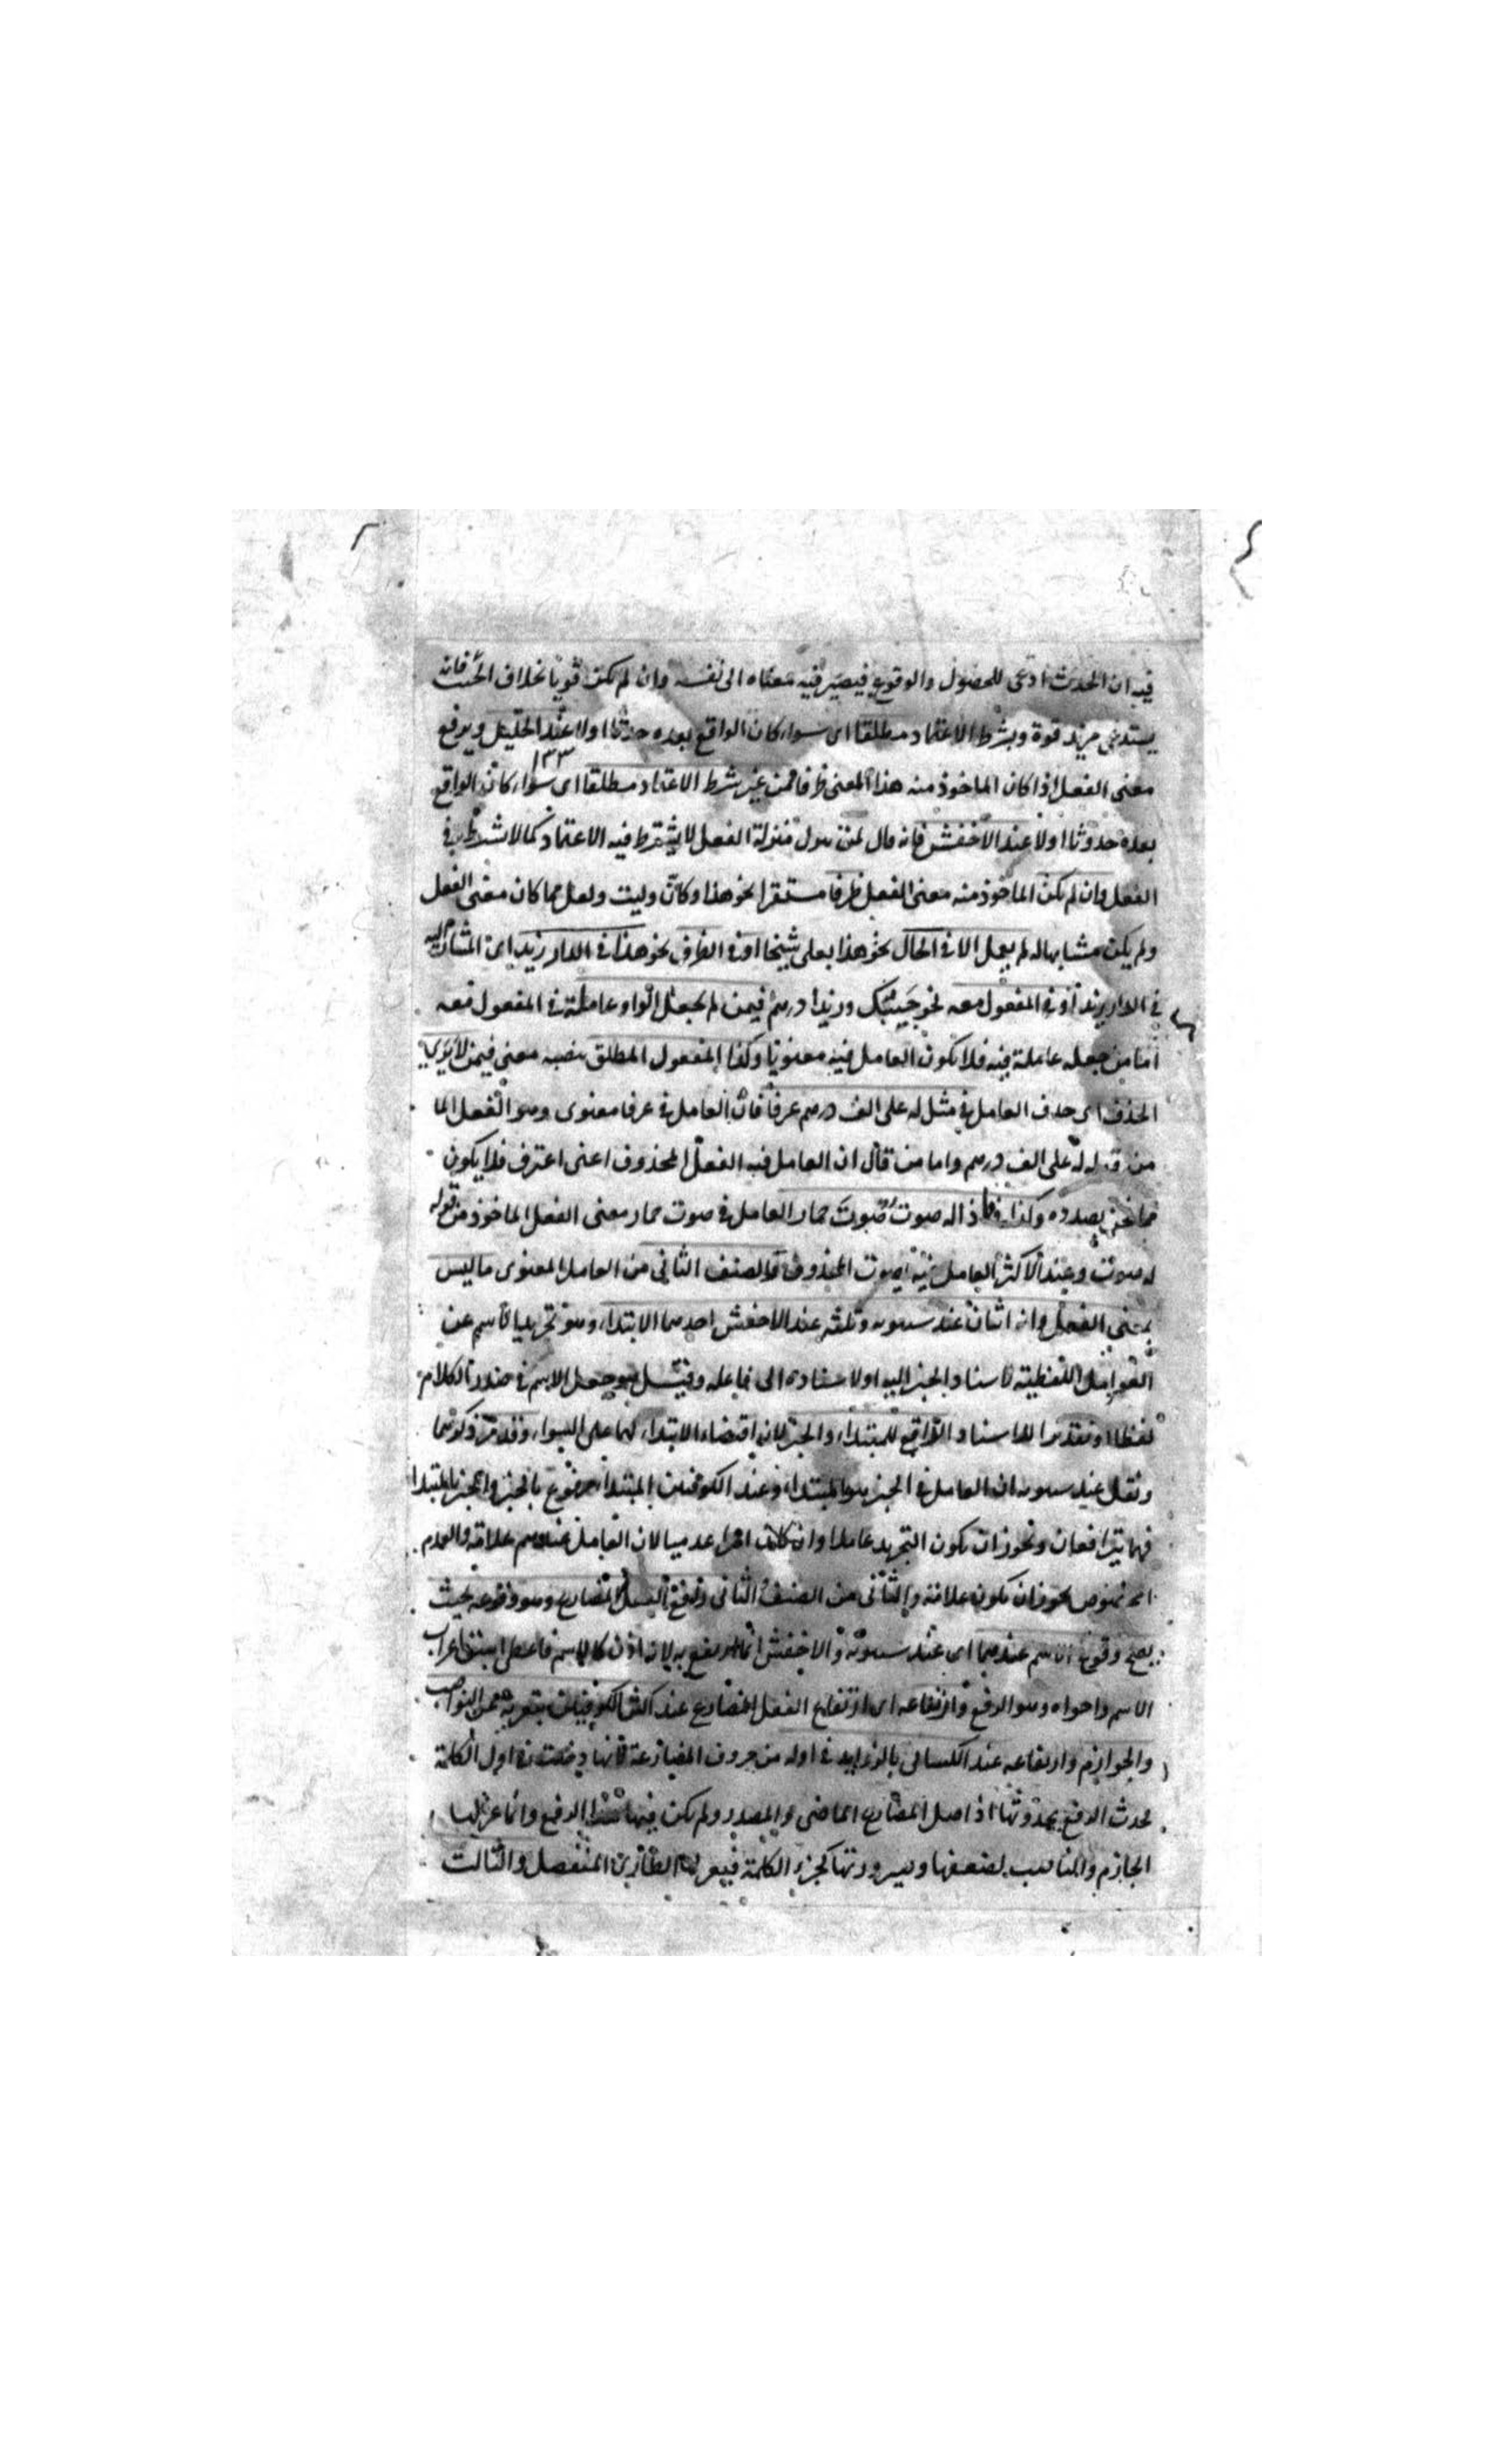 فيه ان الحدث ادعى للحصول والوقوع فيصير فيه معناه الى نفسه وان لم يكن قويا بخلاف الجثث فانه
يستدعى مزيد قوة وبشرط الاعتماد مطلقا اى سواء كان الواقع بعده حدثا اولا عند الخليل ويرفع
١٣٣
معنى الفعل اذا كان الماخوذ منه هذا المعنى ظرفا فمن غير شرط الاعتماد مطلقا اى سواء كان الواقع
بعده حدوثا اولا عند الاخفش فانه قال لمن منزلة الفعل لا يشترط فيه الاعتماد كما لا يشترط فى
الفعل وان لم يكن الماخوذ منه معنى الفعل ظرفا مستقرا نحو هذا وكان وليت ولعل مما كان معنى الفعل
ولم يكن مشابها له لم يعمل الا فى الحال نحو هذا بعلى شيخا او فى الظرف نحو هذا فى الدار زيد اى المشار اليه
فى الدار زيد او فى المفعول معه نحو حسبك وزيدا درهم فيمن لم يجعل الواو عاملة فى المفعول معه
اما من جعله عاملة فيه فلا يكون العامل فيه معنويا وكذا المفعول المطلق ينصبه معنى فيمن لا يرى
الحذف اى حذف العامل فى مثل له على الف درهم عرفا فان العامل فى عرفا معنوى وهو الفعل الما
من قوله له على الف درهم واما من قال ان العامل فيه الفعل المحذوف اعنى اعترف فلا يكون
مما نحن بصدده وكذا فاذا له صوت صوت حمار العامل فى صوت حمار معنى الفعل الماخوذ من قوله
له صوت وعند الاكثر العامل فيه يصوت المحذوف والصنف الثانى من العامل المعنوى ما ليس
بمعنى الفعل وانه اثنان عند سيبويه وثلثه عند الاخفش احدهما الابتداء وهو تجريد الاسم عن
العوامل اللفظية لاسناد الخبر اليه او لاسناده الى فاعله وقيل هو جعل الاسم فى صدر الكلام
لفظا او تقديرا للاسناد الرافع للمبتداء والخبر لان اقتضاء الابتداء لهما على السواء وقد مر ذكرهما
ونقل عند سيبويه ان العامل فى الخبر هو المبتداء وعند الكوفيين المبتداء مرفوع بالخبر والخبر بالمبتدا
فهما يترافعان ونحو ذات يكون التجريد عاملا وان كانت امرا عدميا لان العامل عندهم علامة والعدم
المخصوص يجوز ان يكون علامة والثانى من الصنف الثانى رافع الفعل المضارع وهو وقوعه بحيث
يصح وقوع الاسم عندهما اى عند سيبويه والاخفش انما ارتفع به لانه اذن كالاسم فاعطى اسبق اعراب
الاسم واقواه وهو الرفع وارتفاعه اى ارتفاع الفعل المضارع عند اكثر الكوفيين بتعريه عن النواصب
والجوازم وارتفاعه عند الكسائى بالزوايد فى اوله من حروف المضارعة فانها دخلت فى اول الكلمة
لحدث الرفع بحدوثها اذ اصل المضارع الماضى والمصدر ولم يكن فيهما هذا الرفع وانما عزلها
الجازم والناصب لضعفها وصيرورتها كجزء الكلمة فيعزلها الطارئ المنفصل والثالث